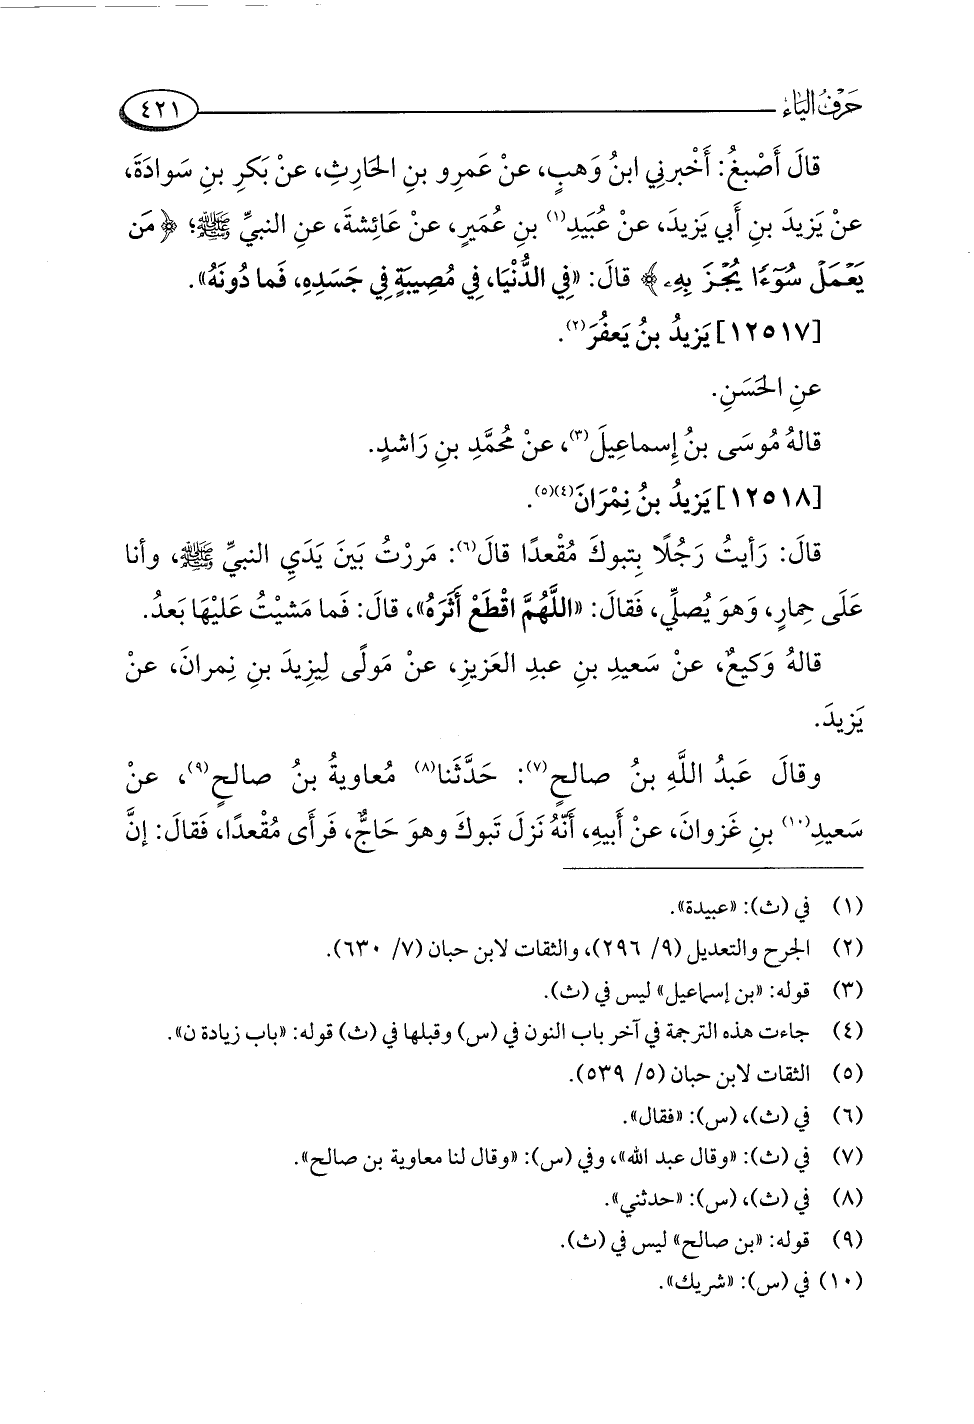 حَرْفُ اليَاءِ ٤٢١
قالَ أَصْبغُ: أَخْبرنِي ابنُ وَهبٍ، عنْ عَمرِو بنِ الحَارِثِ، عنْ بَكرِ بنِ سَوادَةَ،
عنْ يَزيدَ بنِ أَبي يَزيدَ، عنْ عُبَيدِ(١) بنِ عُمَيرٍ، عنْ عَائِشةَ، عنِ النبيِّ ﷺ؛ ﴿مَن
يَعْمَلْ سُوٓءًا يُجْزَ بِهِۦ﴾ قالَ: «فِي الدُّنْيَا، فِي مُصِيبَةٍ فِي جَسَدِهِ، فَما دُونَهُ».
[١٢٥١٧] يَزيدُ بنُ يَعفُرَ(٢).
عنِ الحَسَنِ.
قالهُ مُوسَى بنُ إسماعِيلَ(٣)، عنْ مُحمَّدِ بنِ رَاشدٍ.
[١٢٥١٨] يَزيدُ بنُ نِمْرَانَ(٤)(٥).
قالَ: رَأيتُ رَجُلًا بِتبوكَ مُقْعدًا قالَ(٦): مَررْتُ بَينَ يَدَيِ النبيِّ ﷺ، وأنا
عَلَى حِمارٍ، وَهوَ يُصلِّي، فَقالَ: «اللَّهُمَّ اقْطَعْ أَثَرَهُ»، قالَ: فَما مَشيْتُ عَليْهَا بَعدُ.
قالهُ وَكيعٌ، عنْ سَعيدِ بنِ عبدِ العَزيزِ، عنْ مَولًى لِيزِيدَ بنِ نِمرانَ، عنْ
يَزيدَ.
وقالَ عَبدُ اللَّهِ بنُ صالحٍ(٧): حَدَّثَنا(٨) مُعاويةُ بنُ صالحٍ(٩)، عنْ
سَعيدِ(١٠) بنِ غَزوانَ، عنْ أَبيهِ، أنَّهُ نَزلَ تَبوكَ وهوَ حَاجٌّ، فَرأَى مُقْعدًا، فَقالَ: إنَّ
(١) في (ث): «عبيدة».
(٢) الجرح والتعديل (٩/ ٢٩٦)، والثقات لابن حبان (٧/ ٦٣٠).
(٣) قوله: «بن إسماعيل» ليس في (ث).
(٤) جاءت هذه الترجمة في آخر باب النون في (س) وقبلها في (ث) قوله: «باب زيادة ن».
(٥) الثقات لابن حبان (٥/ ٥٣٩).
(٦) في (ث)، (س): «فقال».
(٧) في (ث): «وقال عبد الله»، وفي (س): «وقال لنا معاوية بن صالح».
(٨) في (ث)، (س): «حدثني».
(٩) قوله: «بن صالح» ليس في (ث).
(١٠) في (س): «شريك».